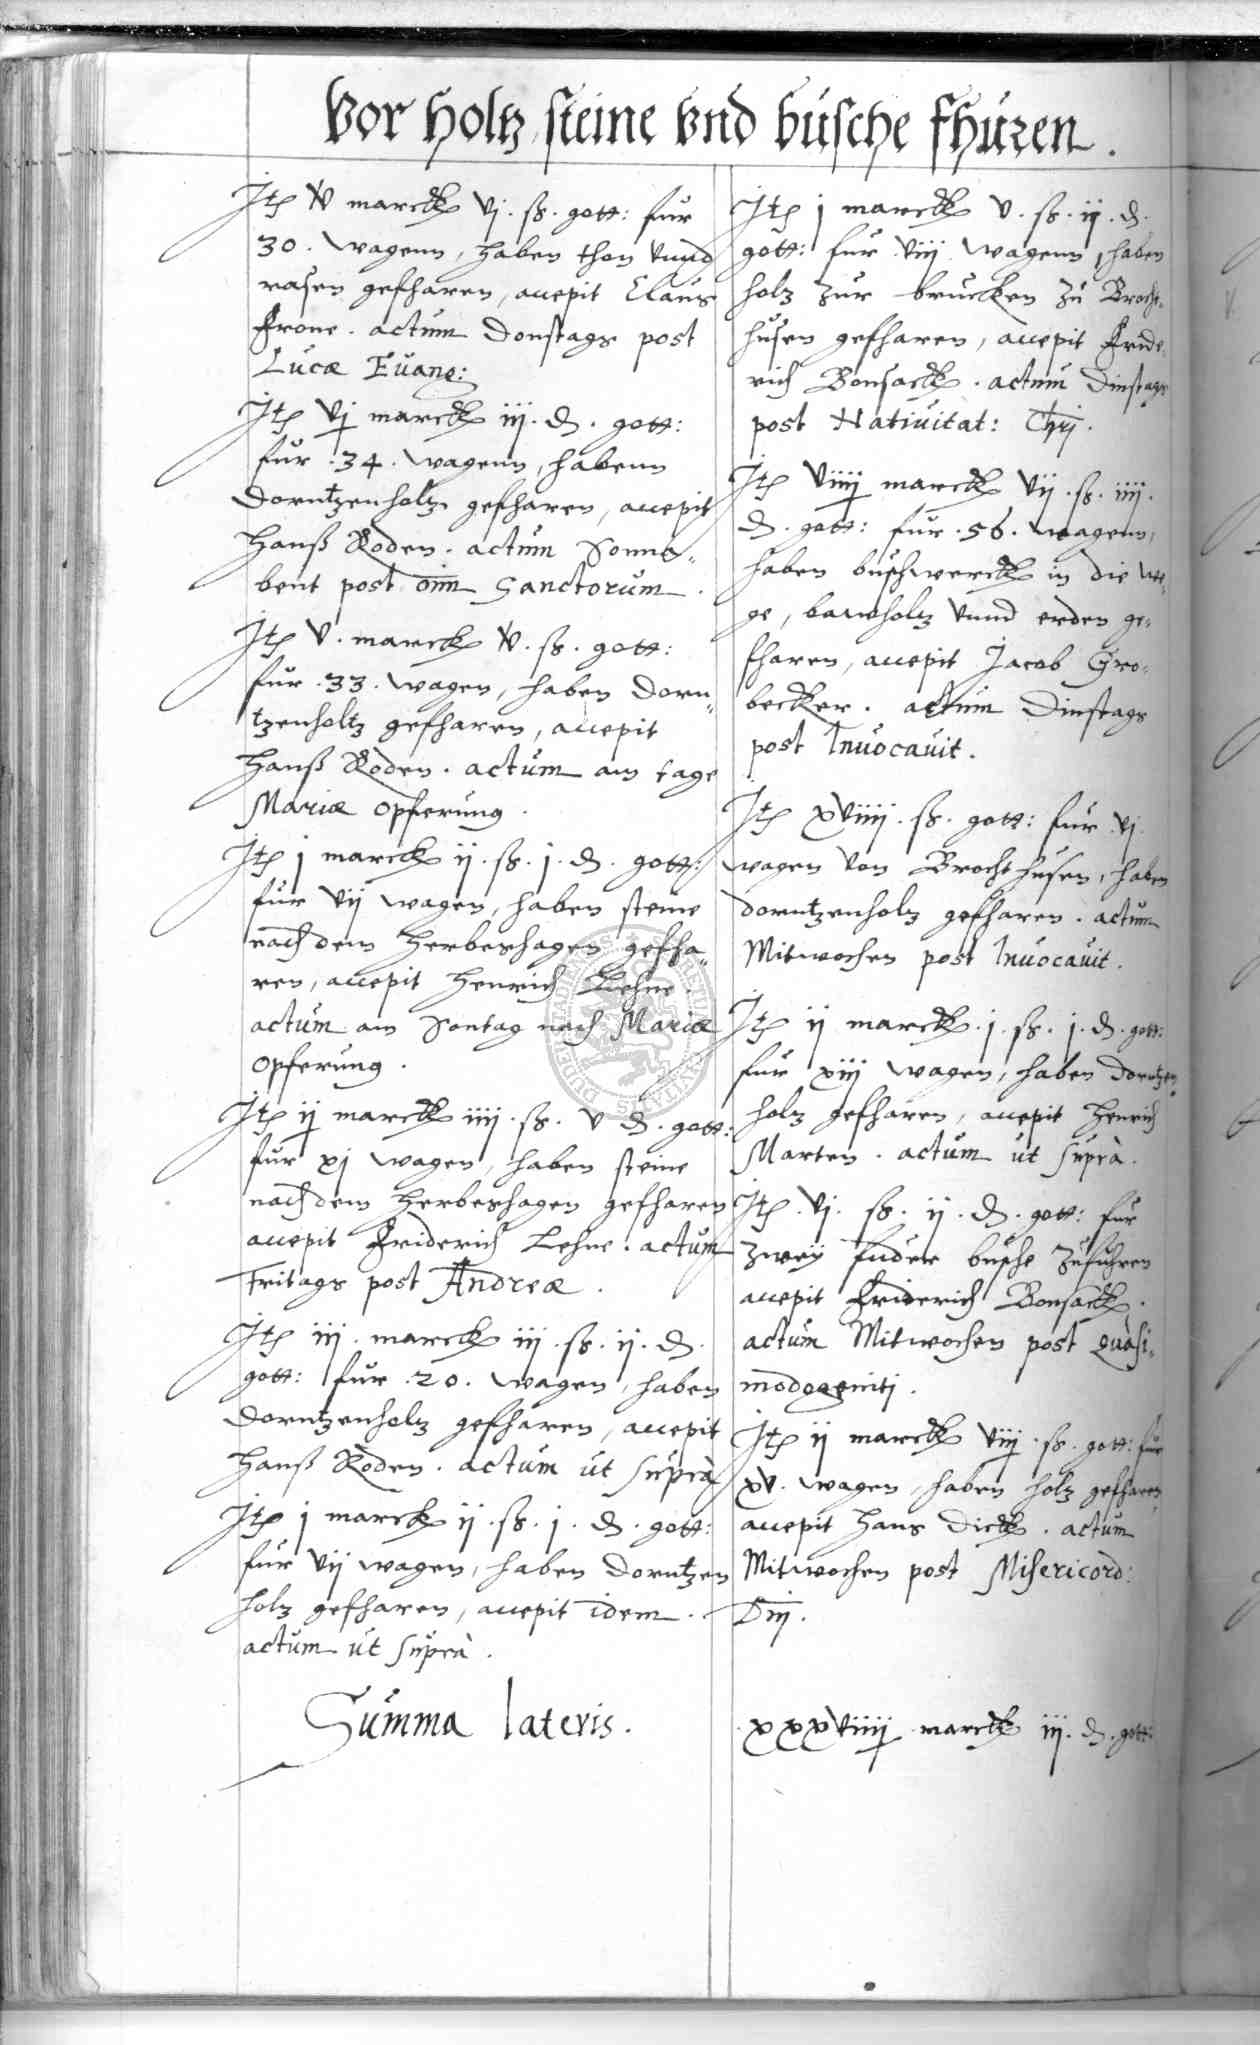 Vor holtz steine vnd büsche fhüren.
Jtem v marck vj. ß. gott: für
30. wagenn, haben thon vnnd
rasen gefharen, accepit Claus
Frone. actum Donstags post
Lucæ Euang:
Jtem vj marck iij. ₰. gott:
für .34. wagenn, habenn
dorntzenholtz gefharen, accepit
Hanß Roden. actum Sonna-
bent post oim Sanctorum.
Jtem v. marck v. ß. gott:
für .33. wagen, haben dorn-
tzenholtz gefharen, accepit
Hanß Roden. actum am tage
Mariæ opferung.
Jtem j marck ij. ß. j. ₰. gott:
für vij wagen, haben steine
nach dem Herbeshagen gefha-
ren, accepit Henrich Lehne.
actum am Sontag nach Mariæ
opferung.
Jtem ij marck iiij. ß. v ₰. gott:
für xj wagen, haben steine
nach dem Herbeshagen gefharen
accepit Friderich Lehne. actum
Fritags post Andreæ.
Jtem iij. marck iij. ß. ij. ₰.
gott: für .20. wagen, haben
dorntzenholtz gefharen, accepit
Hanß Roden. actum ut suprà
Jtem j marck ij. ß. j. ₰. gott:
für vij wagen, haben dorntzen
holtz gefharen, accepit idem.
actum ut suprà.
Jtem j marck v. ß. ij. ₰.
gott: für viij wagenn, haben
holtz zur brucken zu Brocht-
husen gefharen, accepit Fride-
rich Bonsack. actum Dinstags
post Natiuitat: Chri.
Jtem viiij marck vij. ß. iiij.
₰. gott: für .56. wagenn,
haben buschwerck in die we-
ge, bawholtz vnnd erden ge-
fharen, accepit Jacob Gro-
becker. actum Dinstags
post Inuocauit.
Jtem xviiij. ß. gott: für vj.
wagen von Brochthusen, haben
dorntzenholtz gefharen. actum
Mitwochen post Inuocauit.
Jtem ij marck. j. ß. j. ₰. gott:
für xiij wagen, haben dorntzen
holtz gefharen, accepit Henrich
Marten. actum ut suprà.
Jtem .vj. ß. ij. ₰. gott: für
zweij fuder busche zufuhren
accepit Friderich Bonsack.
actum Mitwochen post quasi-
modogeniti.
Jtem ij marck viij. ß. gott: für
xv. wagen, haben holtz gefharen
accepit Hans Dick. actum
Mitwochen post Misericord:
Dnj.
Summa lateris. xxxviiij marck iij. ₰. gott: